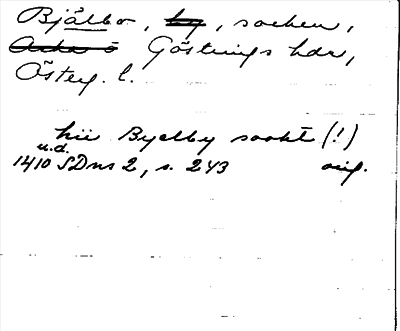 Bjälbo, by, socken,
Göstrings hdr,
Österg. l.
hii Byelby sookt (!)
u.d.
1410 SDns 2, s. 243 orig.